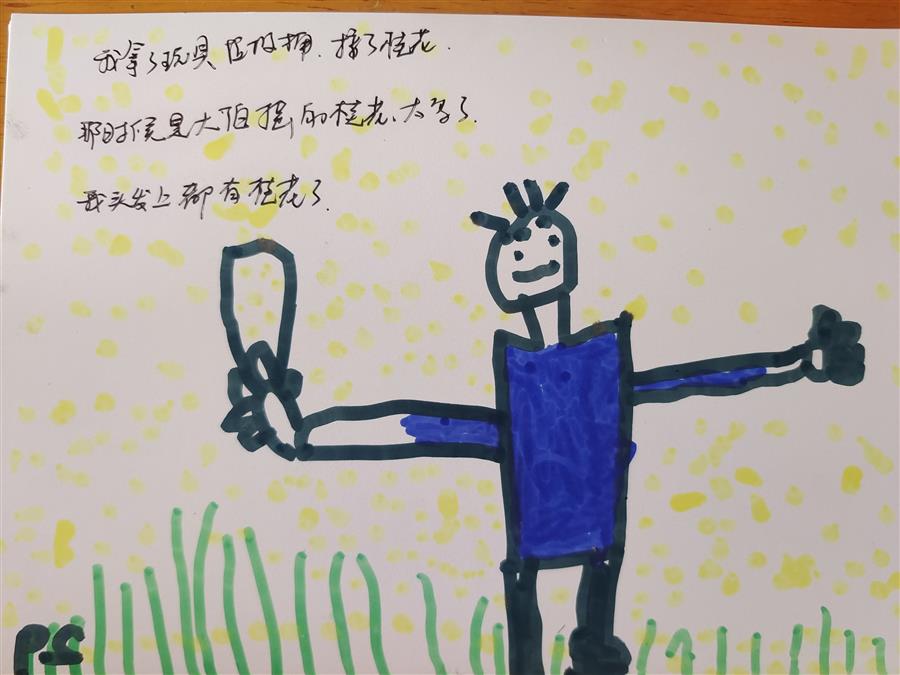 我拿了玩具 摇了桂花.
那时候是大伯摇的桂花、太多了.
我头发上都有桂花了.
P.S